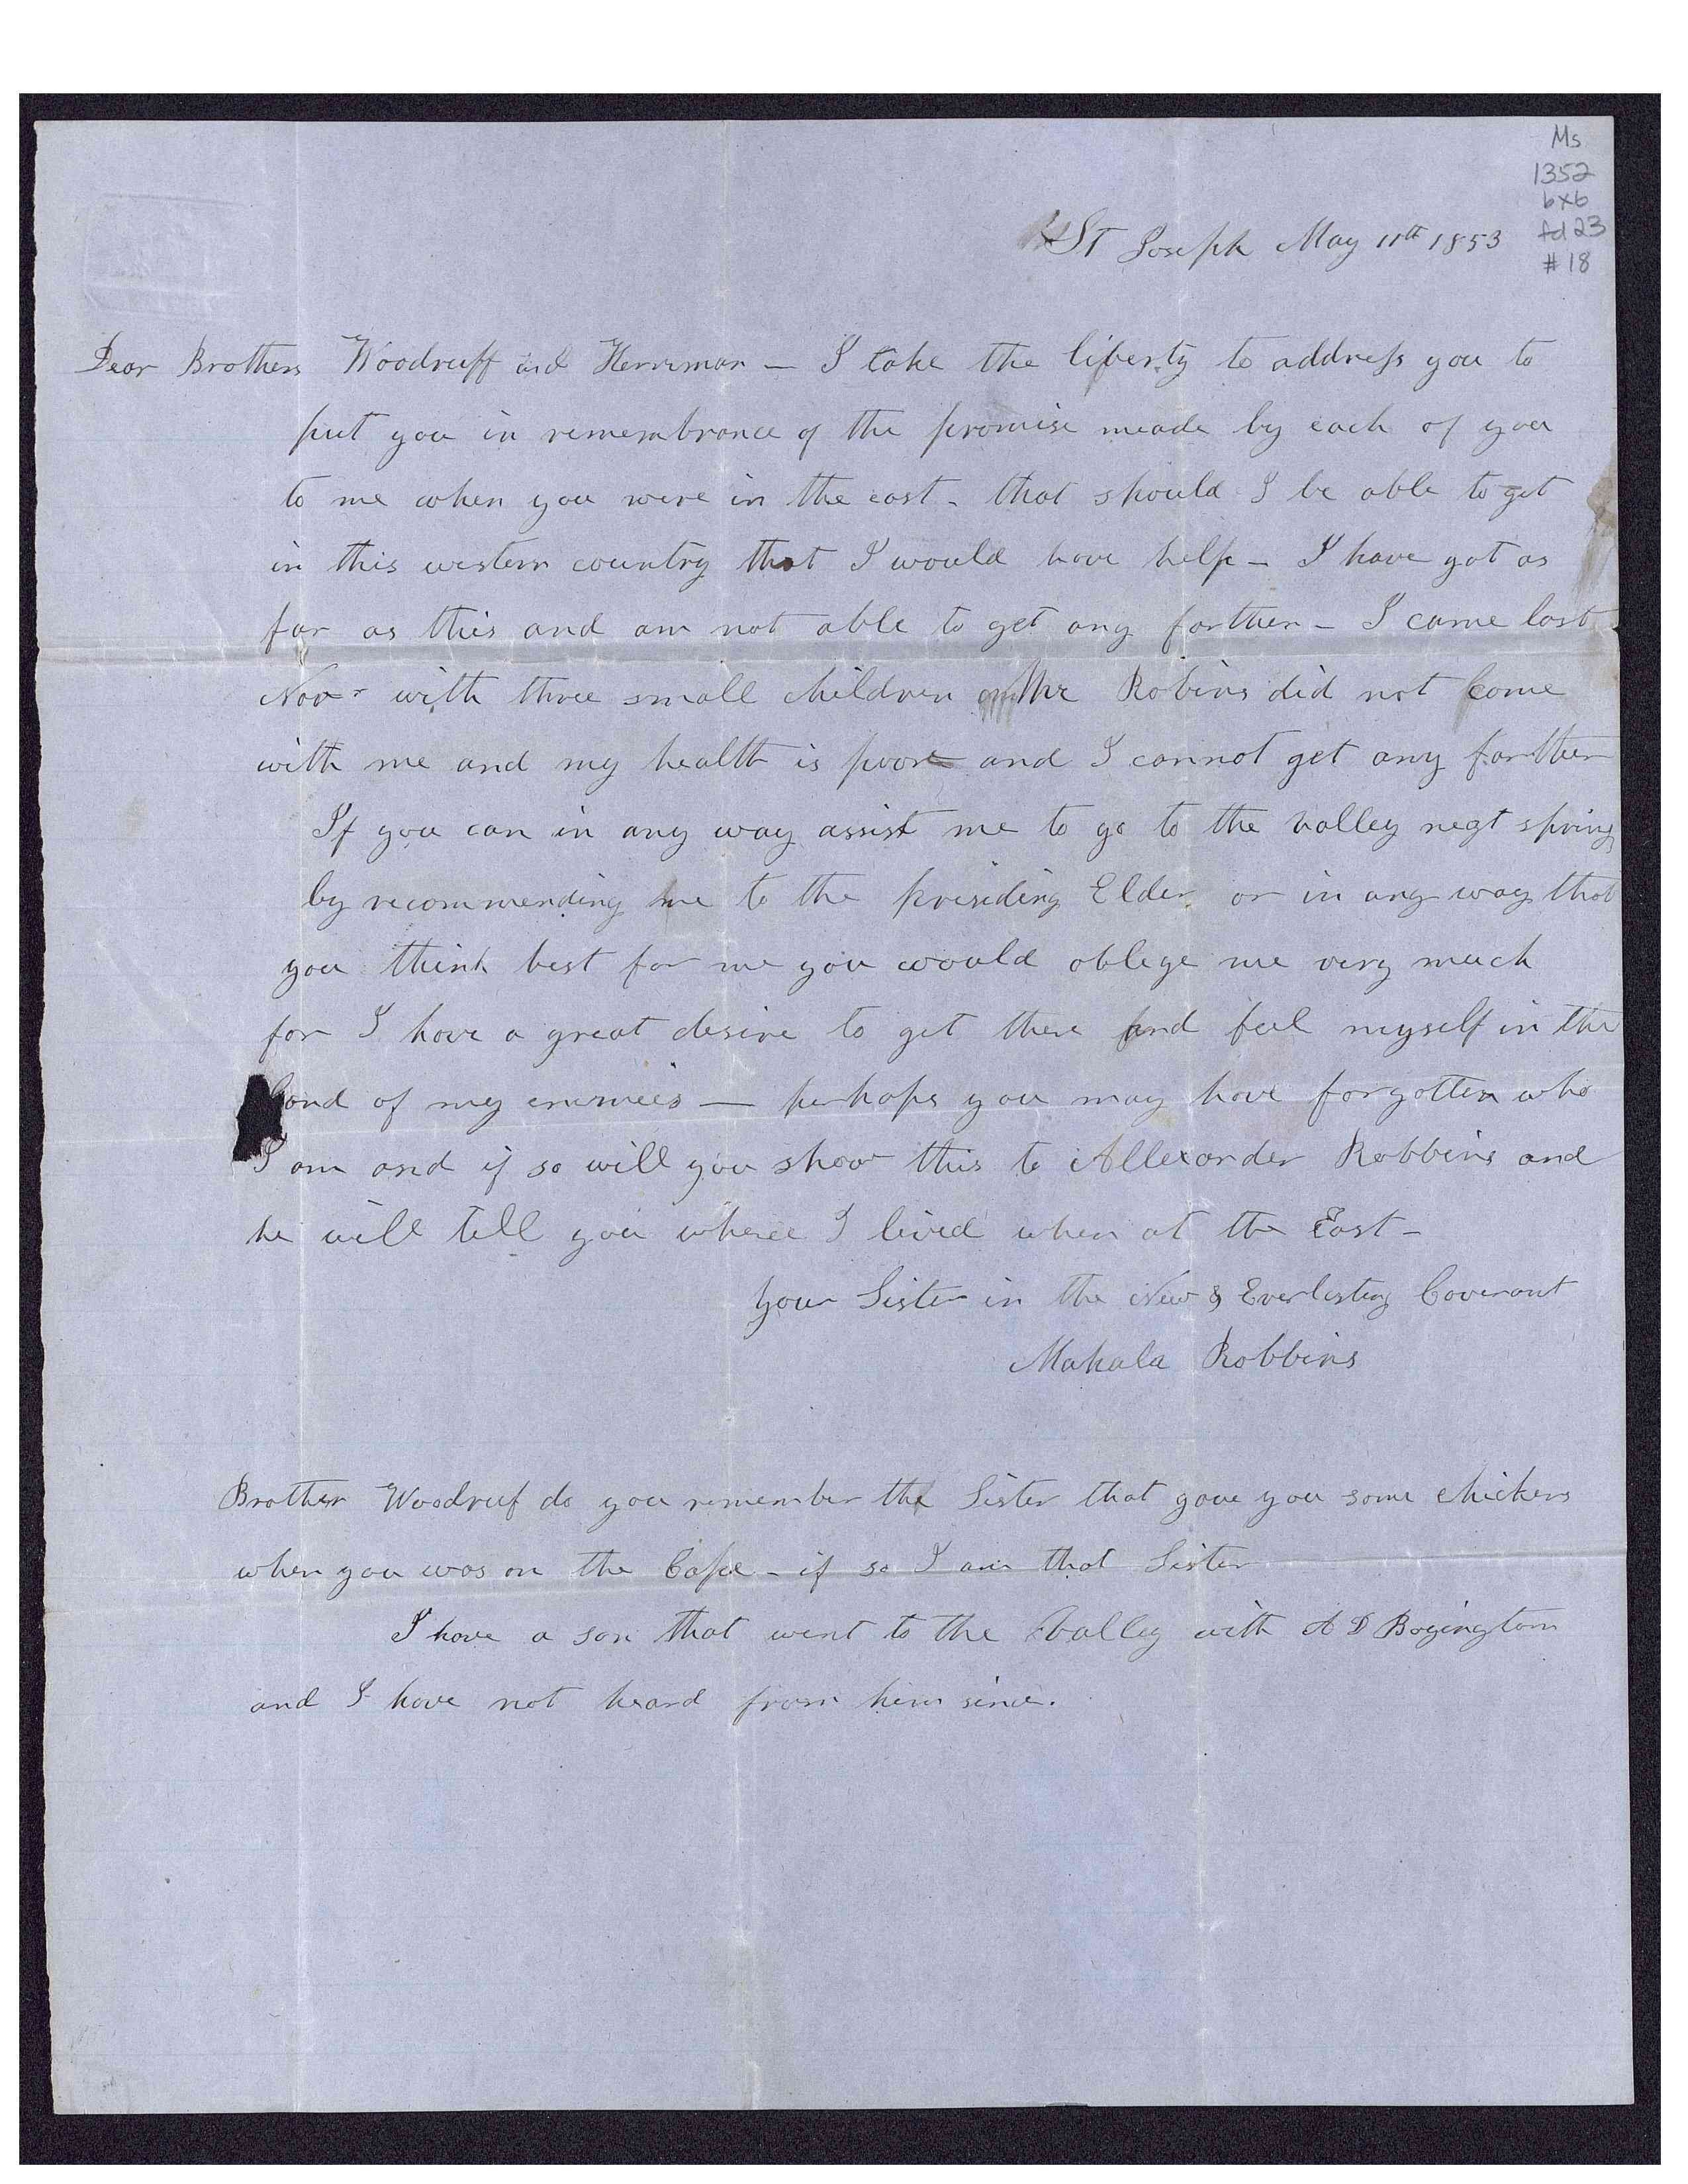 Ms
1352
bx6
fd 23
#18
St Joseph May 11th 1853
Dear Brothers Woodruff and Herrimon — I take the liberty to address you to
put you in remembrance of the promise meade by each of you
to me when you were in the east - that should I be able to get
in this western country that I would have help - I have got as
far as this and am not able to get any farther - I came last
Novr with three small children Mr Robins did not come
with me and my health is poor and I cannot get any farther
If you can in any way assist me to go to the valley negt spring
by recommending me to the presiding Elder or in any way that
you think best for me you would oblege me very much
for I have a great desire to get there and feel myself in the
land of my enemies — perhaps you may have forgotten who
I am and if so will you show this to Allexander Robbins and
he will tell you where I lived when at the East -
your Sister in the New & Everlasting Covenant
Mahala Robbins
Brother Woodruf do you remember the Sister that gave you some chickens
when you was on the Cape - if so I am that Sister
I have a son that went to the valley with A D Boyington
and I have not heard from him since.